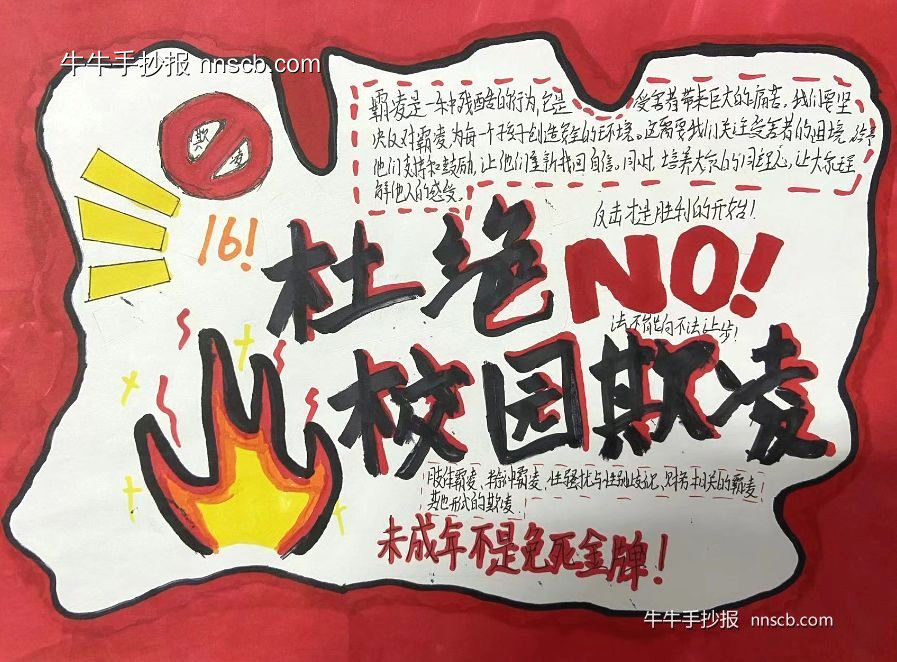 牛牛手抄报 nnscb.com
欺
凌
霸凌是一种残酷的行为,它是 受害者带来巨大的痛苦,我们要坚
决反对霸凌,为每一个孩子创造安全的环境。这需要我们关注受害者的困境,给予
他们支持和鼓励,让他们重新找回自信。同时,培养大众的同理心,让大众理
解他人的感受。
反击才是胜利的开始!
161!
杜绝 NO!
法不能向不法让步!
校园欺凌
肢体霸凌、 霸凌、性骚扰与性别歧视、 相关的霸凌
其他形式的欺凌.
未成年不是免死金牌!
牛牛手抄报 nnscb.com